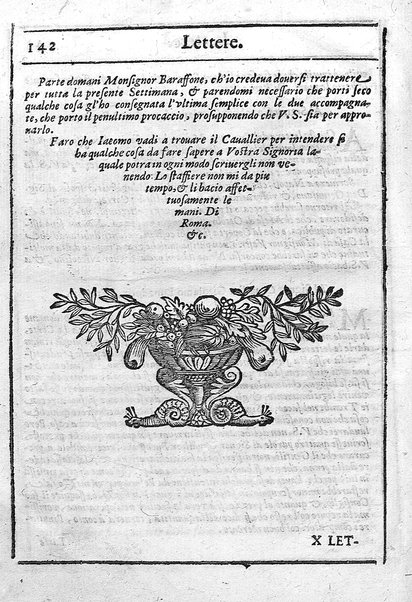 142
Lettere.
Parte domani Monsignor Baraffone, ch'io credeua douersi trattenere
per tutta la presente Settimana, & parendomi necessario che porti seco
qualche cosa gl'ho consegnata l'vltima semplice con le due accompagna-
te, che porto il penultimo procaccio, prosupponendo che V. S. sia per appro-
uarlo.
Faro che Iacomo vadi a trouare il Cauallier per intendere se
ha qualche cosa da fare sapere a Vostra Signoria la-
quale potra in ogni modo scriuergli non ve-
nendo. Lo staffiere non mi da piu
tempo, & li bacio affet-
tuosamente le
mani. Di
Roma.
&c.
X LET-